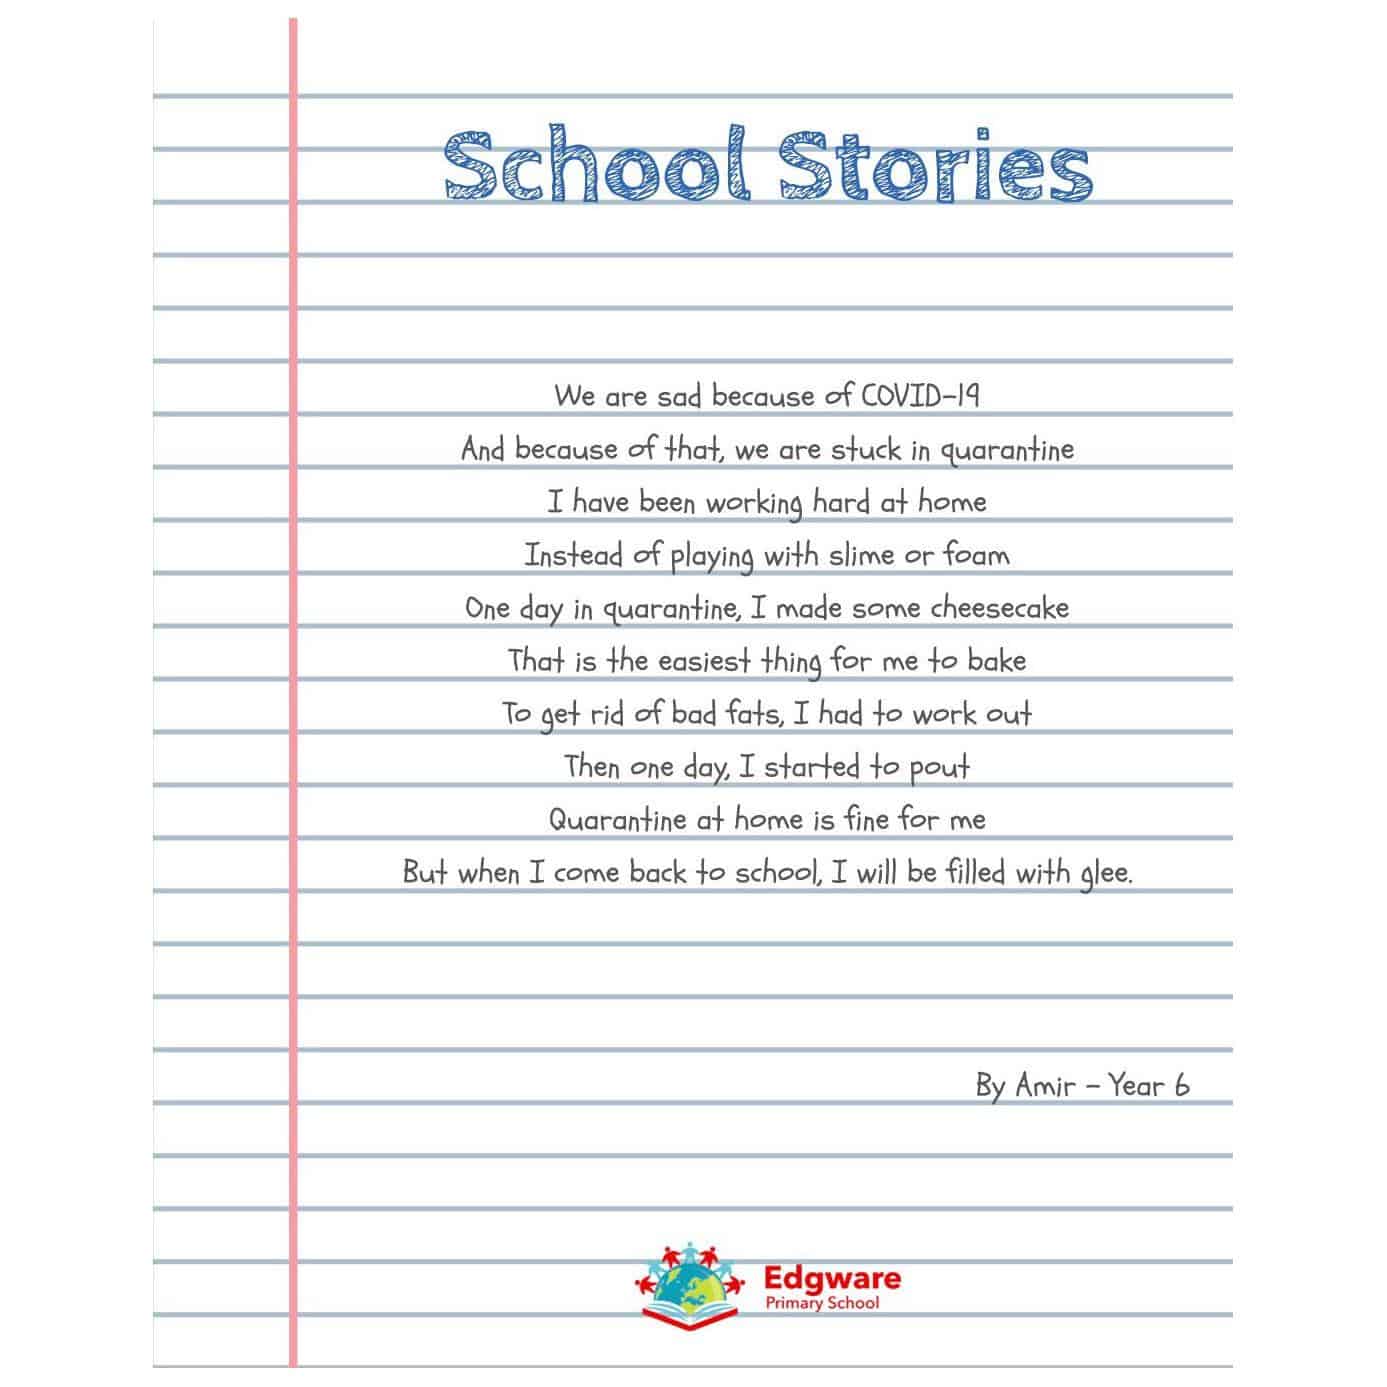 School Stories
We are sad because of COVID-19
And because of that, we are stuck in quarantine
I have been working hard at home
Instead of playing with slime or foam
One day in quarantine, I made some cheesecake
That is the easiest thing for me to bake
To get rid of bad fats, I had to work out
Then one day, I started to pout
Quarantine at home is fine for me
But when I come back to school, I will be filled with glee.
By Amir - Year 6
Edgware
Primary School